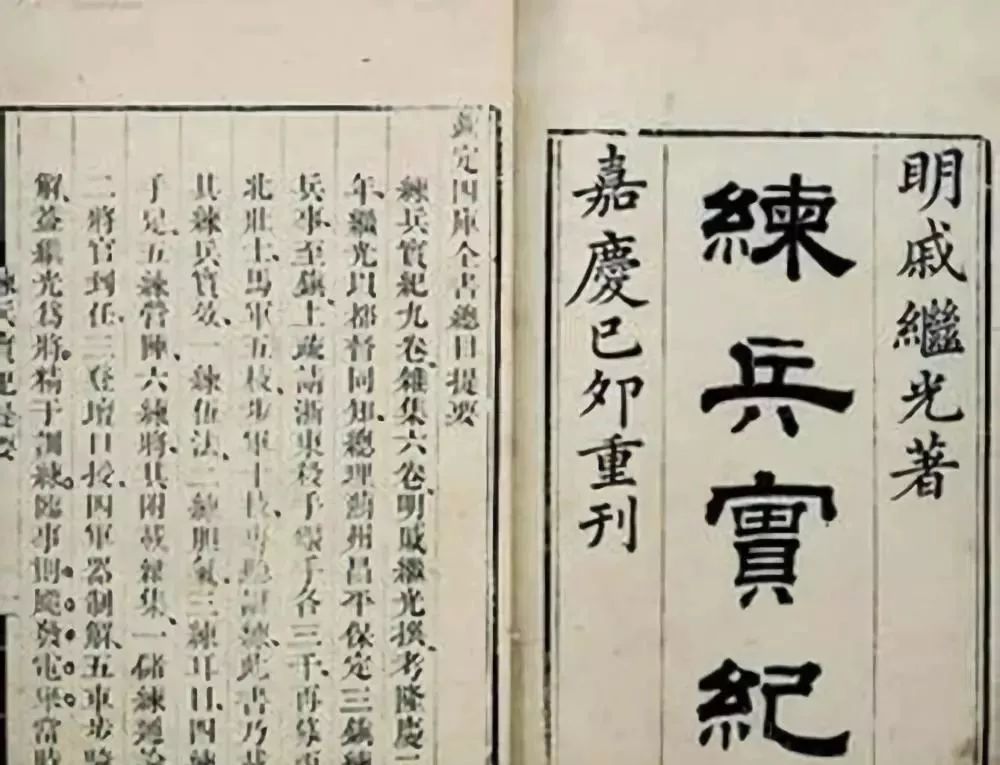 明戚繼光著
練兵實紀
嘉慶已卯重刊
欽定四庫全書總目提要
練兵實紀九卷、雜集六卷、明戚繼光撰、考隆慶二
年、繼光以都督同知、總理薊州昌平保定三鎮練
兵事、至鎮、上疏請浙東殺手
手各三千、再募
北壯士、馬軍五枝、步軍十枝、專聽訓練、此書乃載
其練兵實效、一練伍法、二練膽氣、三練耳目、四練
手足、五練營陣、六練將、其附載雜集、一儲練通論
二將官到任、三登壇口授、四軍器制解、五車步騎
解、蓋繼光為將。精于訓練。臨事則飈發電舉。當時
練兵實紀提要